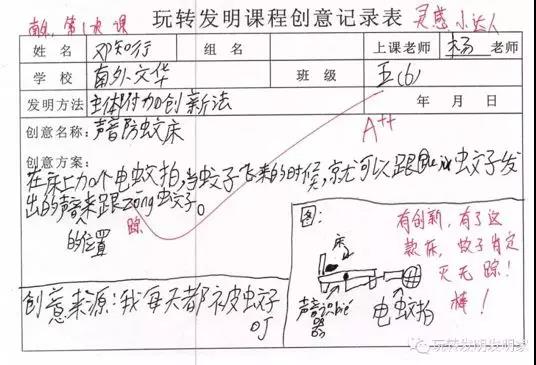 第1次课 玩转发明课程创意记录表 灵感小达人
姓名 邓知行 组名 上课老师 杨 老师
学校 南外文华 班级 五(6)
发明方法 主体附加创新法 年 月 日
创意名称：声音防蚊床 A++
创意方案：
在床上加个电蚊拍，当蚊子飞来的时候，就可以跟 蚊子发
出的声音来跟zōng蚊子。
踪
的位置
图：
床
声音识bié
电蚊拍
有创新，有了这
款床，蚊子肯定
灭无踪！
棒！
创意来源：我每天都被蚊子
叮
玩转发明发明家